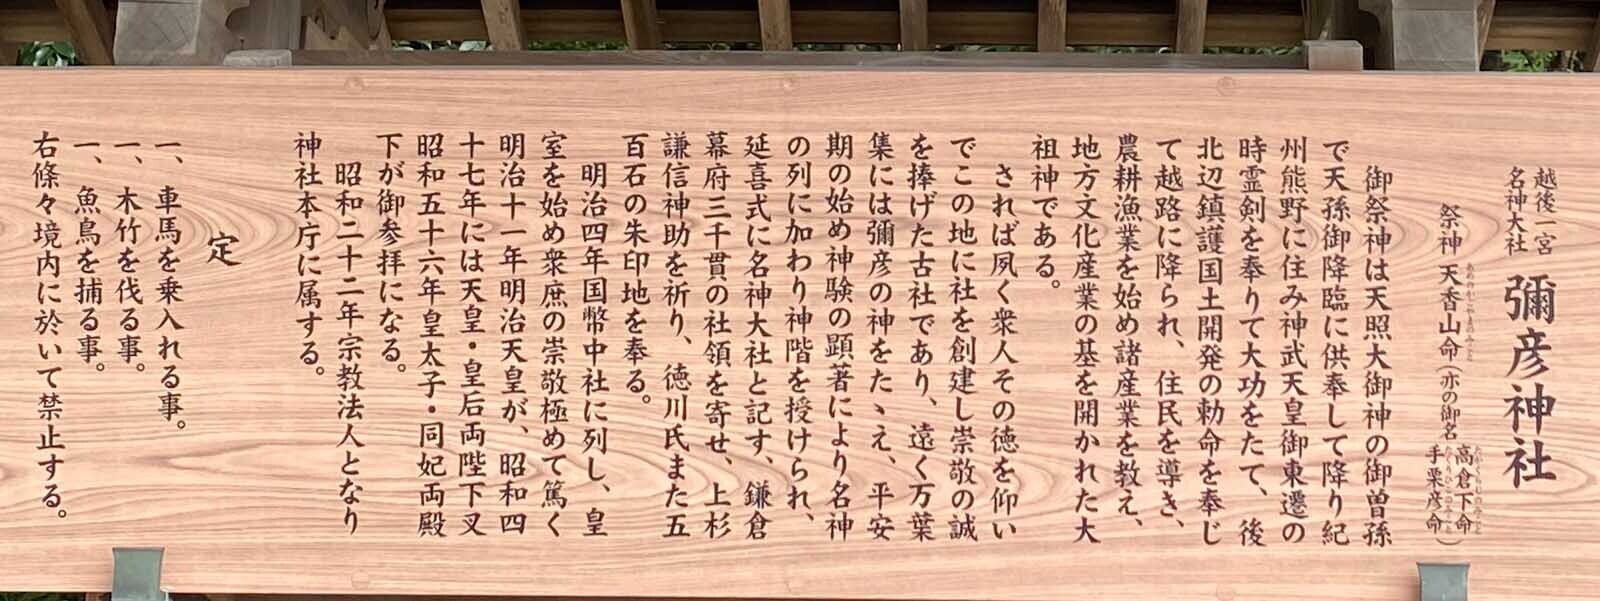 越後一宮
名神大社
彌彦神社
祭神 天香山命(亦の御名 高倉下命 手栗彦命)
御祭神は天照大御神の御曽孫
で天孫御降臨に供奉して降り紀
州熊野に住み神武天皇御東遷の
時霊剣を奉りて大功をたて、後
北辺鎮護国土開発の勅命を奉じ
て越路に降られ、住民を導き、
農耕漁業を始め諸産業を教え、
地方文化産業の基を開かれた大
祖神である。
されば夙く衆人その徳を仰い
でこの地に社を創建し崇敬の誠
を捧げた古社であり、遠く万葉
集には彌彦の神をたゝえ、平安
期の始め神験の顕著により名神
の列に加わり神階を授けられ、
延喜式に名神大社と記す、鎌倉
幕府三千貫の社領を寄せ、上杉
謙信神助を祈り、徳川氏また五
百石の朱印地を奉る。
明治四年国幣中社に列し、皇
室を始め衆庶の崇敬極めて篤く
明治十一年明治天皇が、昭和四
十七年には天皇・皇后両陛下又
昭和五十六年皇太子・同妃両殿
下が御参拝になる。
昭和二十二年宗教法人となり
神社本庁に属する。
定
一、車馬を乗入れる事。
一、木竹を伐る事。
一、魚鳥を捕る事。
右條々境内に於いて禁止する。